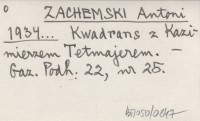 o
ZACHEMSKI Antoni
1934... Kwadrans z Kazi-
mierzem Tetmajerem. —
Gaz. Podh. 22, nr 25.